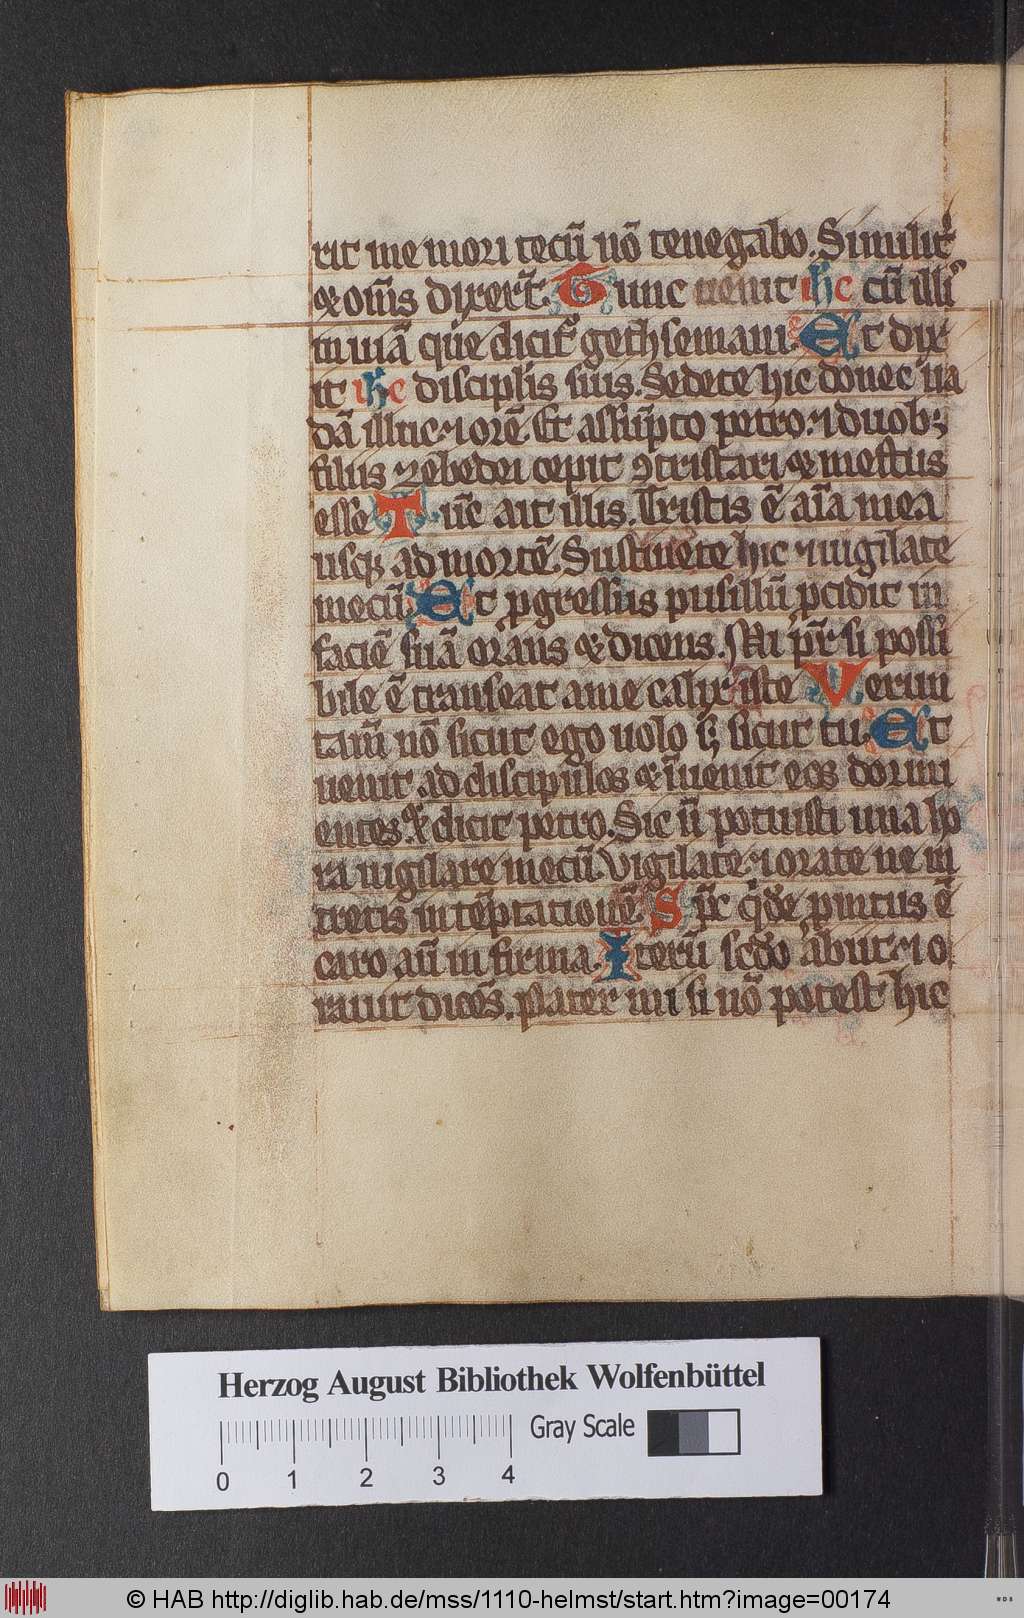 rit me mori tecū nō te negabo. Similit᷑
⁊ om̄s dixer̄t. Tunc uenit ihc cū illiꝰ
in uillā que dicit᷑ gethsemani. Et dix
it ihc disciplis suis. Sedete hic donec ua
dā illuc ⁊ orē. Et assūpto petro ⁊ duobꝫ
filiis zebedei cepit ꝯtristari ⁊ mestus
esse. Tūc ait illis. Tristis ē aīa mea
usqꝫ ad mortē. Sustinete hic ⁊ uigilate
mecū. Et ꝓgressus pusillū ꝓcidit in
faciē suā orans ⁊ dicens. Mi pr̄ si possi
bile ē transeat a me calix iste Verun
tam̄ nō sicut ego uolo sꝫ sicut tu. Et
uenit ad discipulos ⁊ īuenit eos dormi
entes. ⁊ dicit petro. Sic n̄ potuisti una ho
ra uigilare mecū. Vigilate ⁊ orate ne in
tretis in tēptationē. Sp̄c q̇dē prntus ē
caro aū infirma. Iterū scdo abiit ⁊ o
rauit dicēs. Pater mi si nō potest hic
Herzog August Bibliothek Wolfenbüttel
Gray Scale
0 1 2 3 4
© HAB http://diglib.hab.de/mss/1110-helmst/start.htm?image=00174